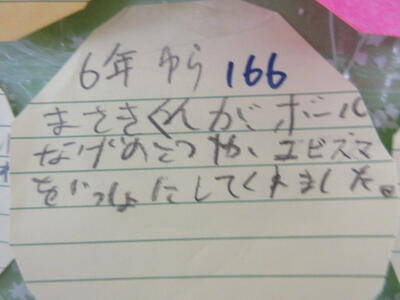 6年 ゆら 166
まさきくんがボール
なげのこつや、エビズマ
をいっしょにしてくれました。